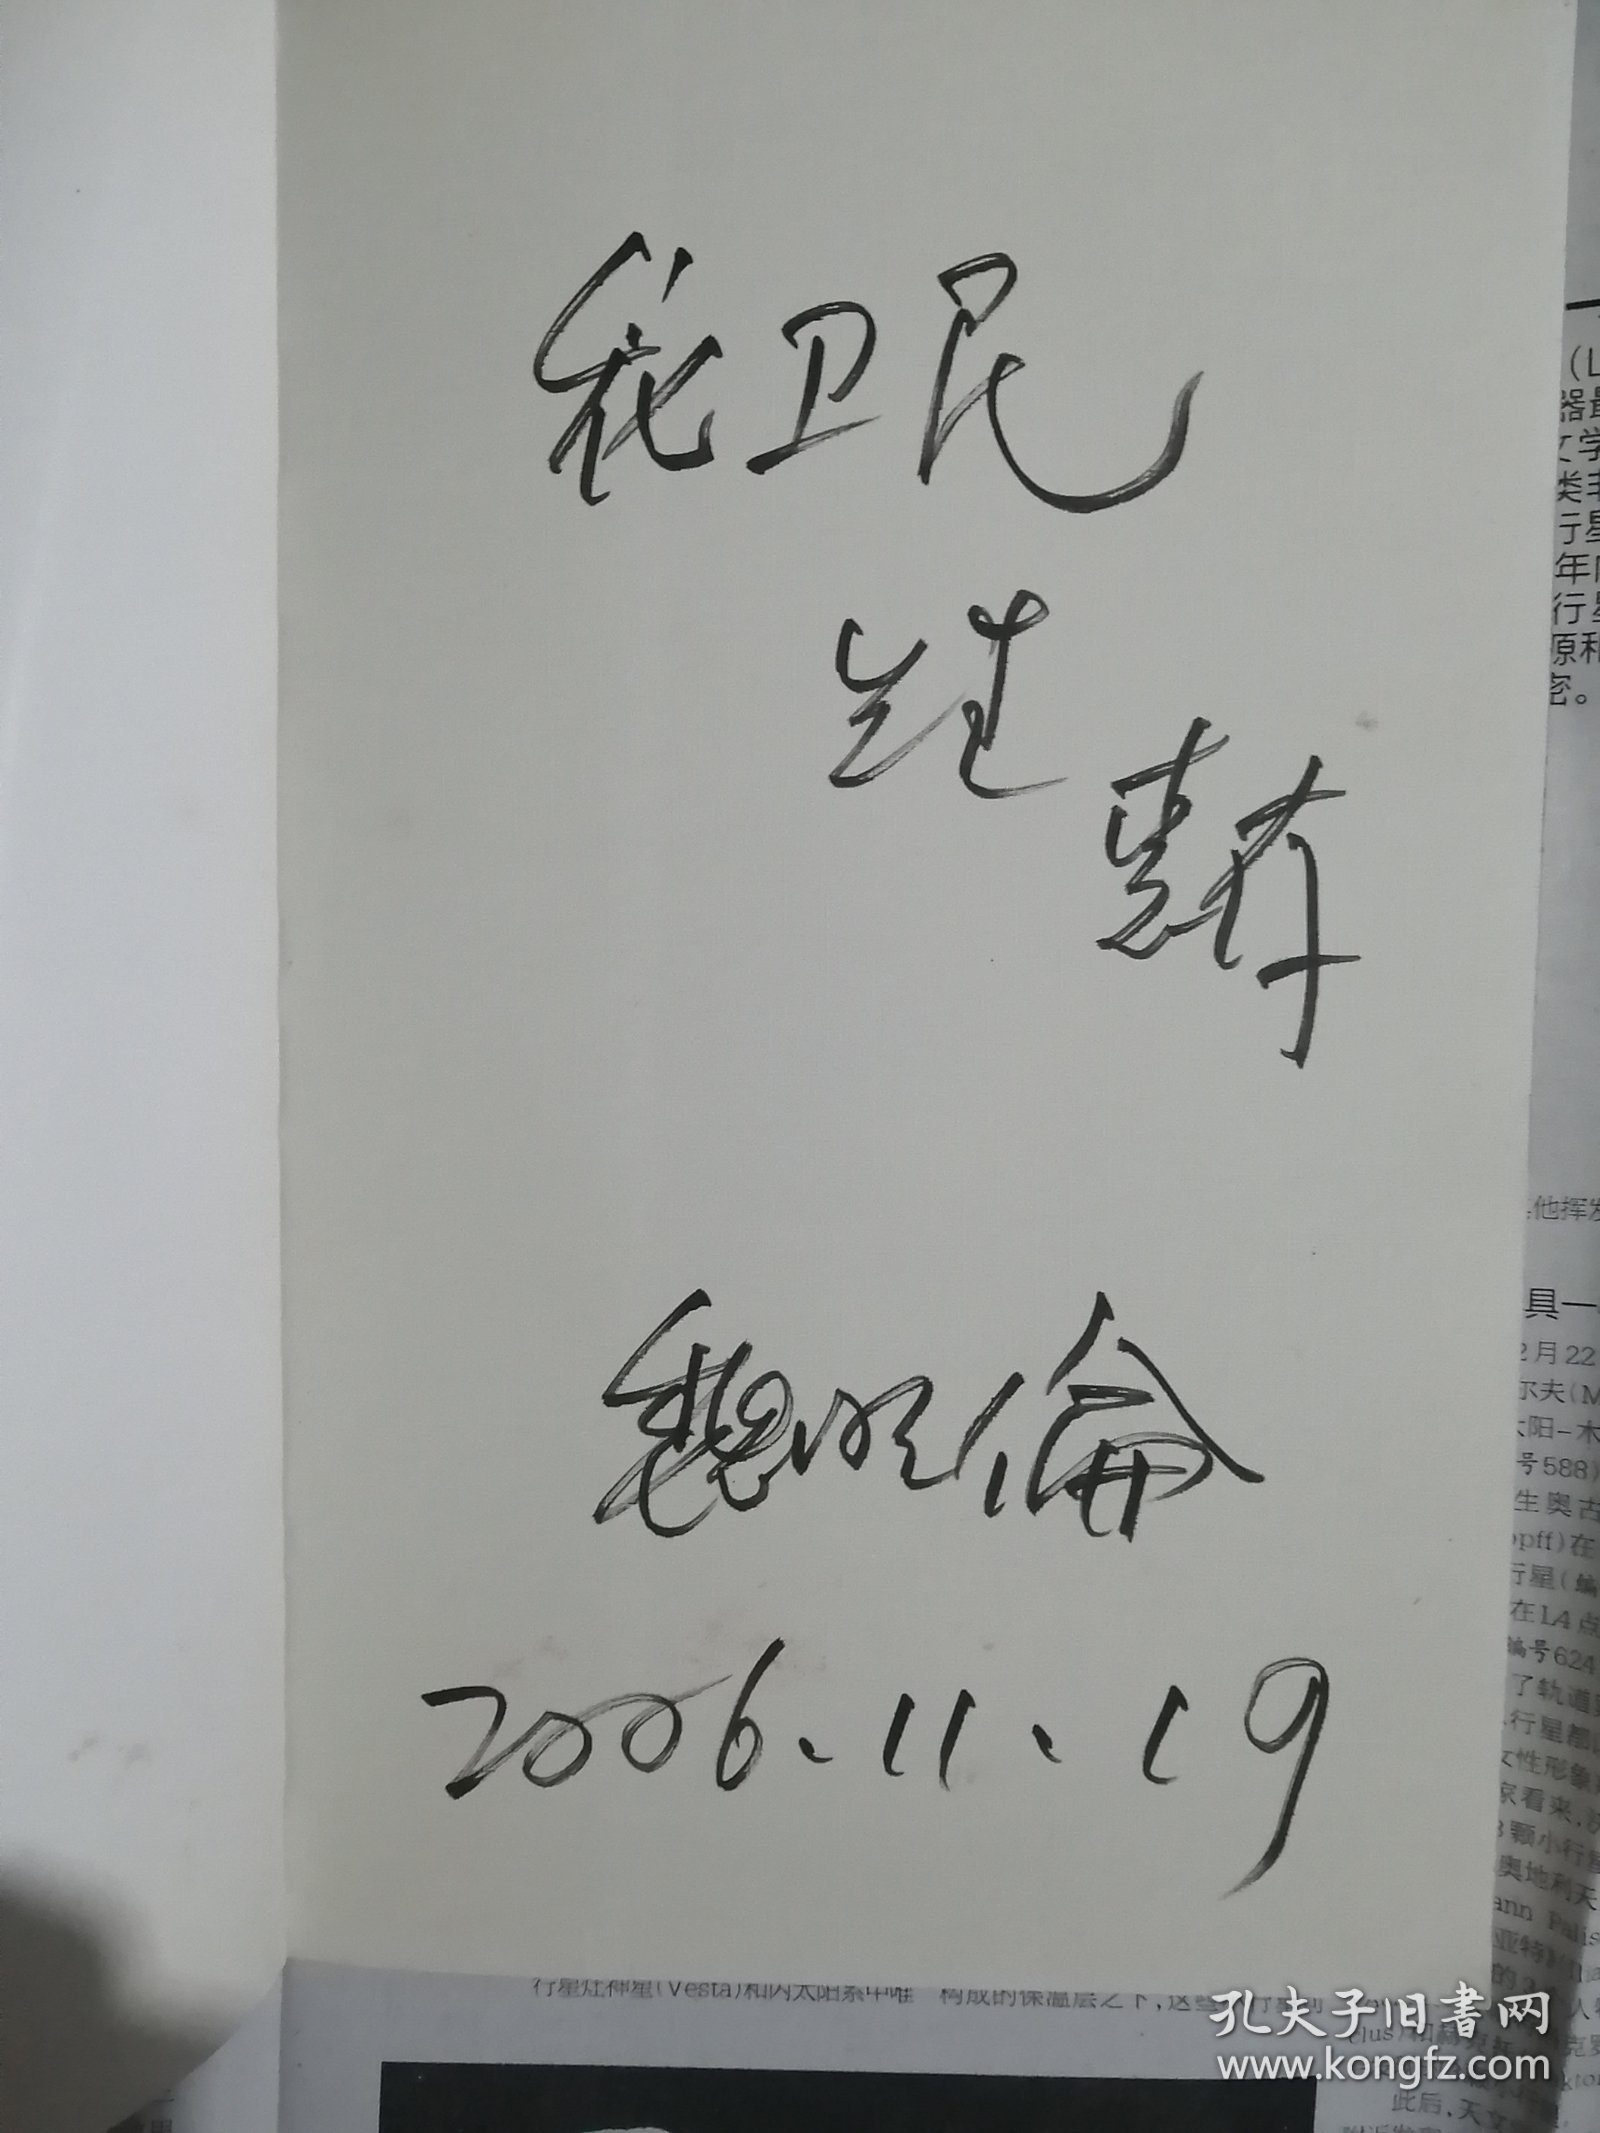 卫民
先生
惠存
魏明倫
2006.11.19
(L
器最
文学
类非
行星
年
行星
原和
密。
其他挥发
具一
2月22
尔夫(M
太阳-木
号588)
生奥古
opff)在
行星(编
在L4点
编号624
了轨道
行星都
女性形象
家看来,
8颗小行星
奥地利天
ann Palis
亚特》(Ilia
行星灶神星(Vesta)和内太阳系中唯
构成的保温层之下,这些
此后,天文
孔夫子旧书网
www.kongfz.com